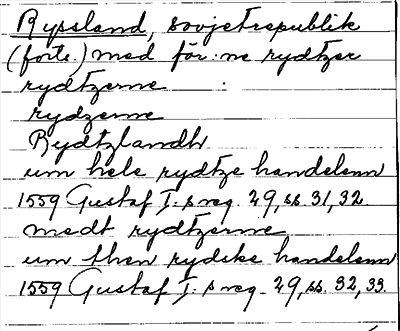 Ryssland, sovjetrepublik
(forts.) med för:ne rydtzer
rydtzerne :
rydzerne
Rydtzlandh
um hele rydtze handelenn
1559 Gustaf I:s reg. 29, ss. 31, 32.
medt rydtzerne
um then rydske handelenn
1559 Gustaf I:s reg. 29, ss. 32, 33.